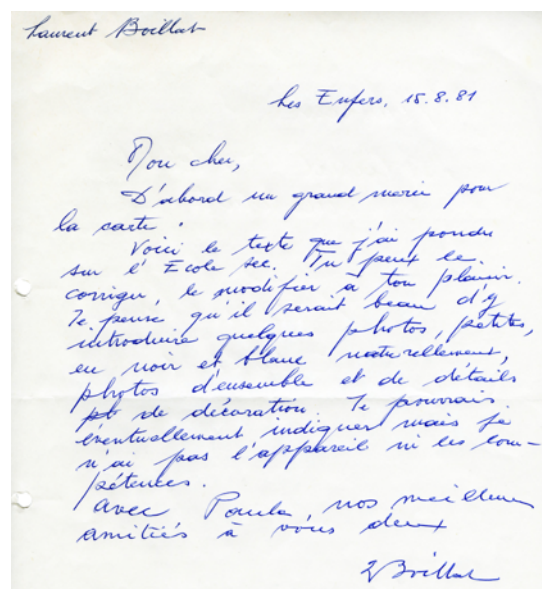 Laurent Boillat
Les Enfers, 15.8.81
Mon cher,
D'abord un grand merci pour
la carte.
Voici le texte que j'ai pondu
sur l'Ecole sec. Tu peux le
corriger, le modifier à ton plaisir.
Je pense qu'il serait beau d'y
introduire quelques photos, petites,
en noir et blanc naturellement,
photos d'ensemble et de détails
de décoration. Je pourrais
éventuellement indiquer mais je
n'ai pas l'appareil ni les com-
pétences.
avec Paula, nos meilleures
amitiés à vous deux
LBoillat